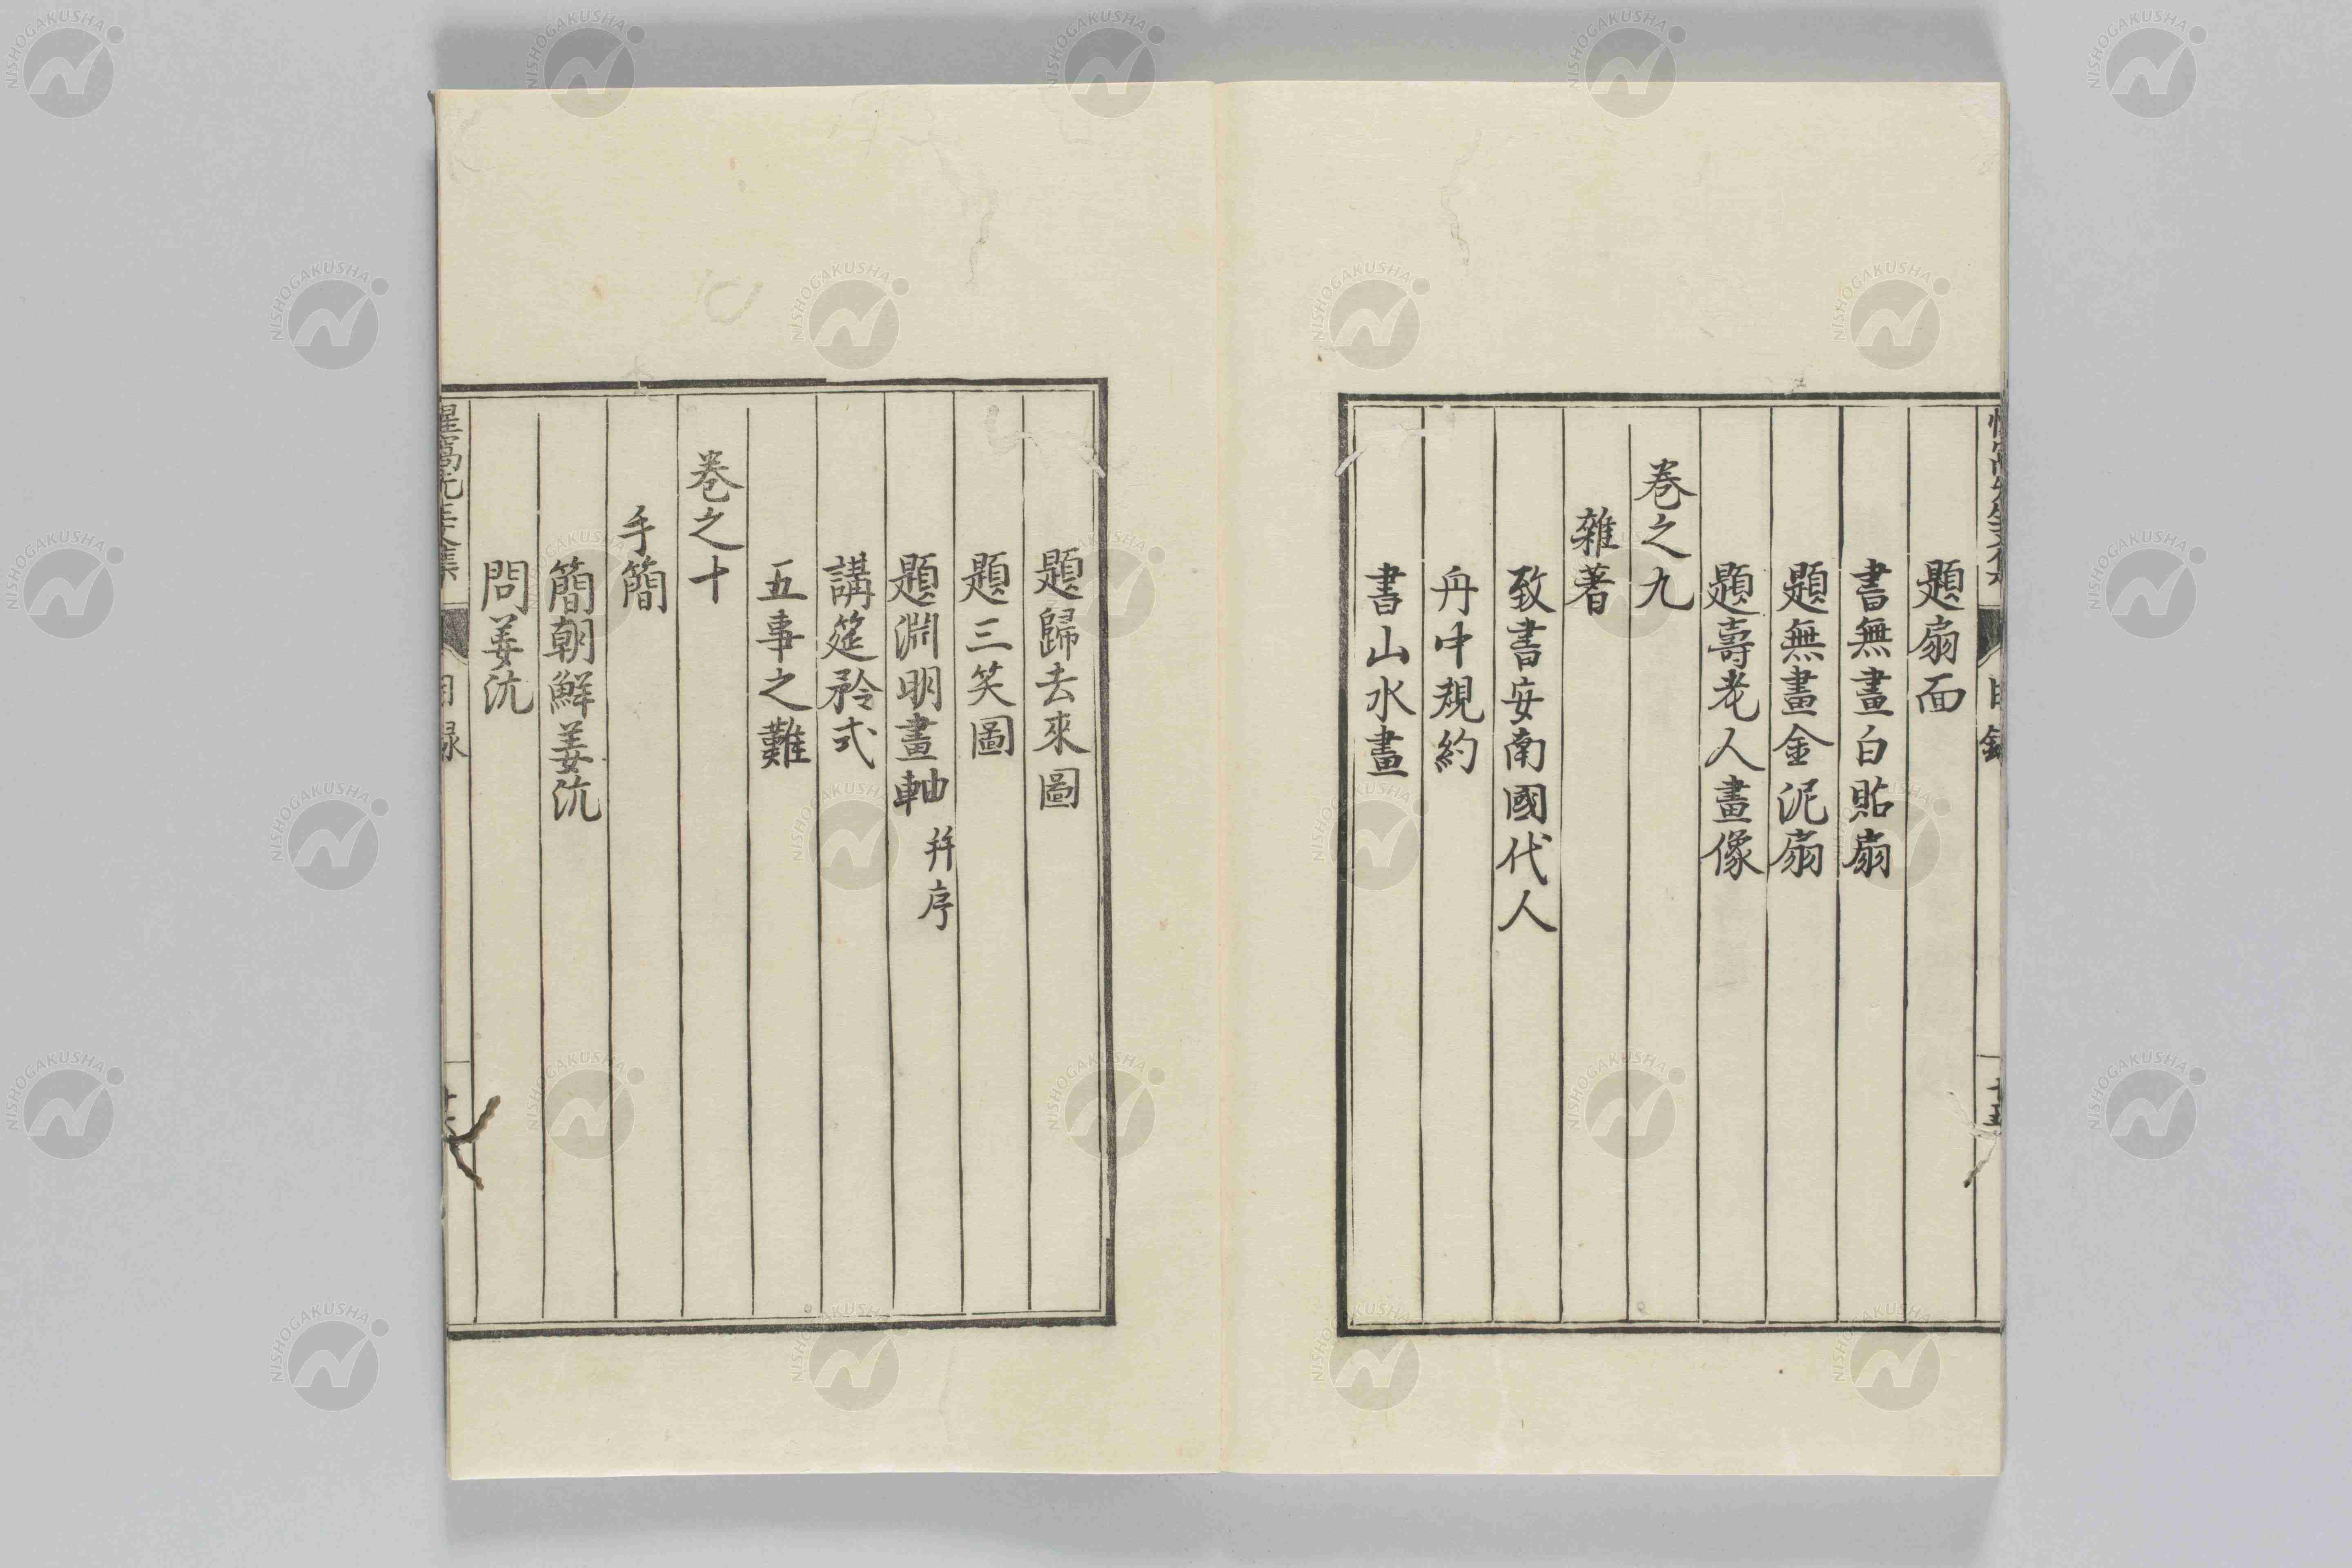 題扇面
書無畫白貼扇
題無畫金泥扇
題壽老人畫像
卷之九
雜著
致書安南國代人
舟中規約
書山水畫
題歸去來圖
題三笑圖
題淵明畫軸 并序
講筵矜式
五事之難
卷之十
手簡
簡朝鮮姜沆
問姜沆
NISHOGAKUSHA